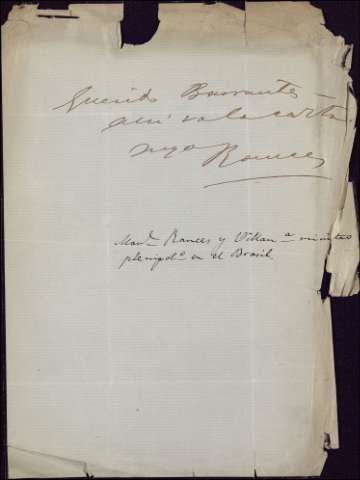 Querido Barrantes
aquí va la carta
suyo
Rances
Man.l Rances y Villan.a ministro
plenipot.o en el Brasil.